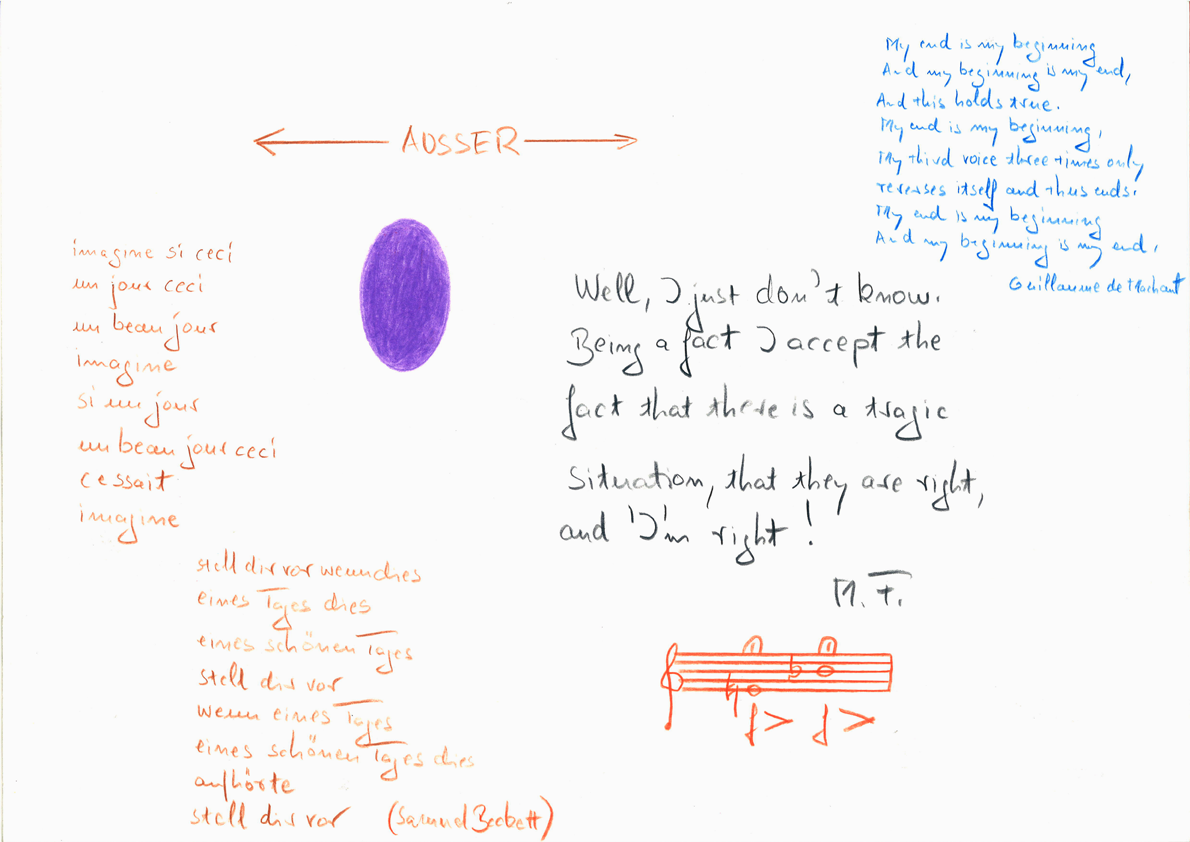 My end is my beginning
And my beginning is my end,
And this holds true.
My end is my beginning,
My third voice three times only
reverses itself and thus ends.
My end is my beginning
And my beginning is my end,
Guillaume de Machant
AUSSER
imagine si ceci
un jour ceci
un beau jour
imagine
si un jour
un beau jour ceci
cessait
imagine
Well, I just don't know.
Being a fact I accept the
fact that there is a tragic
situation, that they are right,
and 'I'm right!
M. F.
stell dir vor wenn dies
eines Tages dies
eines schönen Tages
stell dir vor
wenn eines Tages
eines schönen Tages dies
aufhörte
stell dir vor (Samuel Beckett)
f > f >